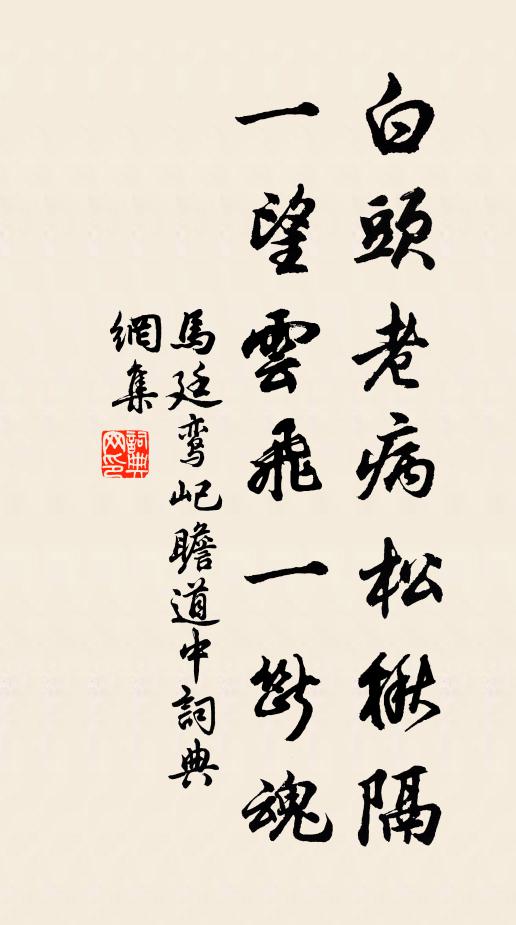 白頭老病松楸隔
一望雲飛一斷魂
馬廷鸾屺瞻道中詞典
網集
詞典网印